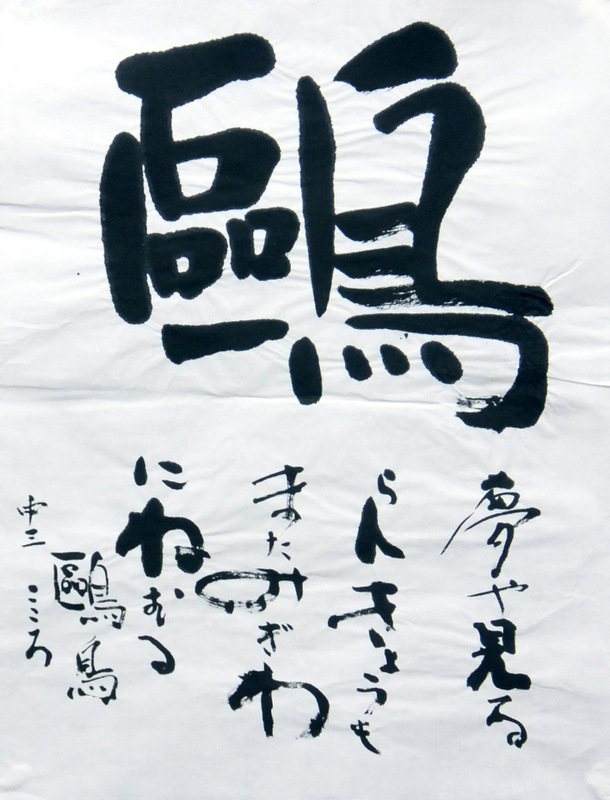 鷗
夢や見る
らんきょうも
またみぎわ
にねむる
鷗鳥
申三 こころ